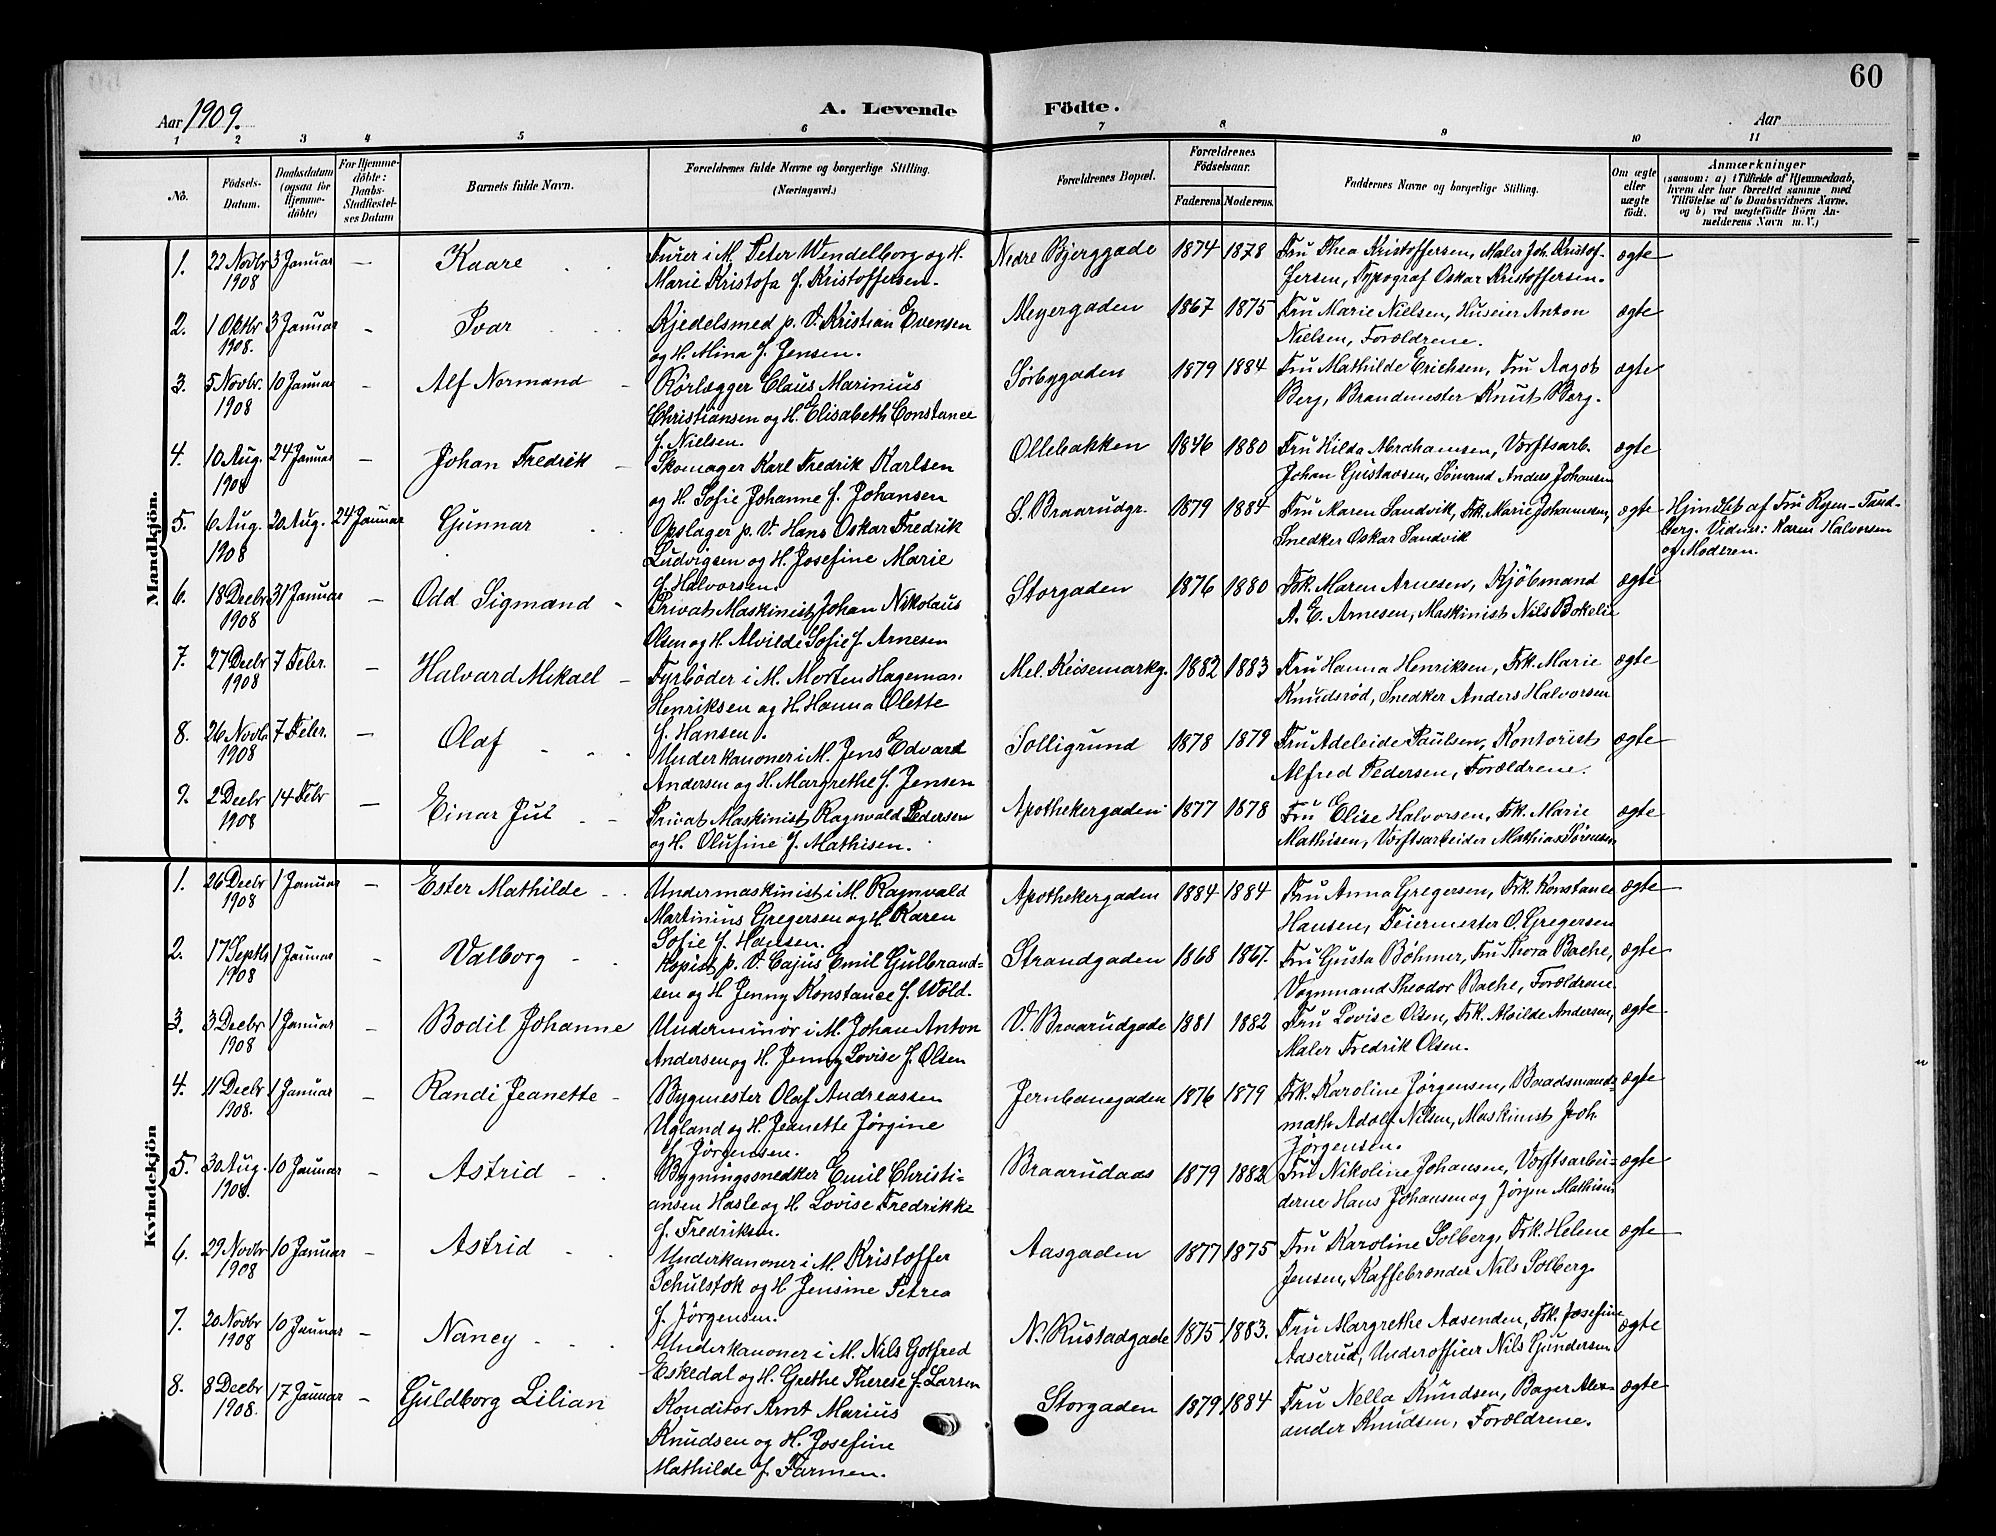 60
Aar 1909.
A. Levende Födte.
Aar
1 2 3 4 5 6 7 8 9 10 11
No.
Födsels-Datum.
Daabsdatum (ogsaa for Hjemme-döbte)
For Hjemme-döbte: Daabs-Stadfæstel-ses Datum
Barnets fulde Navn.
Forældrenes fulde Navne og borgerlige Stilling. (Næringsvei.)
Forældrenes Bopæl.
Forældrenes Födselsaar.
Faderens. Moderens.
Faddernes Navne og borgerlige Stilling.
Om ægte eller uægte födt.
Anmærkninger
(saasom: a) i Tilfælde af Hjemmedaab,
hvem der har forrettet samme med
Tilföielse af to Daabsvidners Navne.
og b) ved uægtefödte Börn An-
melderens Navn m. V.)
Mandkjön.
1. 22 Novbr 1908 3 Januar — Kaare
Fürer i M. Peter Wendelborg og H.
Marie Kristofa f. Kristoffersen.
Nedre Bjerggade 1874 1878
Fru Thea Kristoffersen, Maler Joh. Kristof-
fersen, Typograf Oskar Kristoffersen.
ægte
2. 1 Oktbr 1908. 3 Januar - Ivar
Kjedelsmed p. V. Kristian Evensen
og H. Mina f. Jensen.
Meyergaden 1867 1875
Fru Marie Nielsen, Huseier Anton
Nielsen, Forældrene.
ægte
3. 5 Novbr. 1908 10 Januar - Alf Normand
Rørlægger Claus Marinius
Christiansen og H. Elisabeth Constance
f. Nielsen.
Sørbygaden 1879 1884
Fru Mathilde Erichsen, Fru Aagot
Berg, Brandmester Knut Berg.
ægte
4. 10 Aug. 1908 24 Januar — Johan Fredrik
Skomager Karl Fredrik Karlsen
og H. Sofie Johanne f. Johansen
Ollebakken 1846 1880
Fru Hilda Abrahamsen, Værftsarb.
Johan Gustavsen, Sömand Anders Johansen
ægte
5. 6 Aug. 1908 20 Aug. 24 Januar Gunnar
Opslager p. V. Hans Oskar Fredrik
Ludvigsen og H. Josefine Marie
f. Halvorsen.
S. Braarudgr. 1879 1884
Fru Maren Sandvik, Frk. Marie Johannesen,
Snedker Oskar Sandvik
ægte
Hjmdbt af Fru Ryen-Tand-
berg. Vidner: Karen Halvorsen
og Moderen.
6. 18 Decbr 1908 31 Januar — Odd Sigmand
Privat Maskinist Johan Nikolaus
Olsen og H. Alvilde Sofie f. Arnesen
Storgaden 1876 1880
Frk. Maren Arnesen, Kjöbmand
A. E. Arnesen, Maskinist Nils Bokelie
ægte
7. 27 Decbr 1908 7 Febr. — Halvard Mikael
Fyrböder i M. Morten Hagemar.
Henriksen og H. Hanna Olette
f. Hansen.
Mel. Keisemarkg. 1882 1883
Fru Hanna Henriksen, Frk. Marie
Knudsrød, Snedker Anders Halvorsen
ægte
8. 26 Novbr. 1908 7 Febr. — Olaf
Underkanoner i M. Jens Edvard
Andersen og H. Margrethe f. Jensen
Solligrund 1878 1879
Fru Adeleide Paulsen, Kontorist
Alfred Pedersen, Forældrene.
ægte
9. 2 Decbr 1908 14 Febr — Einar Jul
Privat Maskinist Ragnvald Pedersen
og H. Olufine f. Mathisen.
Apothekergaden 1877 1878
Fru Elise Halvorsen, Frk. Marie
Mathisen, Værftsarbeider Mathias Sørensen
ægte
Kvindekjön
1. 26 Decbr 1908 1 Januar — Ester Mathilde
Undermaskinist i M. Ragnvald
Martinius Gregersen og H. Karen
Sofie f. Hansen.
Apothekergaden 1884 1884
Fru Anna Gregersen, Frk. Konstance
Hansen, Feiermester O. Gregersen
ægte
2. 17 Septbr 1908 1 Januar - Valborg
Kopist p. V. Cajus Emil Gulbrand-
sen og H. Jenny Konstance f. Wold.
Strandgaden 1868 1867.
Fru Gusta Böhmer, Fru Thora Bache,
Vognmand Theodor Bache, Forældrene.
ægte
3. 3 Decbr 1908 1 Januar - Bodil Johanne
Underminör i M. Johan Anton
Andersen og H. Jenny Lovise f. Olsen
V. Braarudgade 1881 1882
Fru Lovise Olsen, Frk. Alvilde Andersen,
Maler Fredrik Olsen.
ægte
4. 11 Decbr 1908. 1 Januar - Randi Jeanette
Bygmester Olaf Andreassen
Ugland og H. Jeanette Jørgine
f. Jørgensen.
Jernbanegaden 1876 1879
Frk. Karoline Jørgensen, Baadsmands-
math Adolf Nilsen, Maskinist Joh.
Jørgensen.
ægte
5. 30 Aug. 1908. 10 Januar - Astrid
Bygningssnedker Emil Christi-
ansen Hasle og H. Lovise Fredrikke
f. Fredriksen.
Braarudaas 1879 1882
Fru Nikoline Johansen, Værftsarbei-
derne Hans Johansen og Jørgen Mathisen
ægte
6. 29 Novbr 1908 10 Januar - Astrid
Underkanoner i M. Kristoffer
Schulstok og H. Jensine Petrea
f. Jørgensen.
Aasgaden 1877 1875
Fru Karoline Solberg, Frk. Helene
Jensen, Kaffebrænder Nils Solberg
ægte
7. 20 Novbr 1908 10 Januar - Nancy
Underkanoner i M. Nils Gotfred
Eskedal og H. Grethe Therese f. Larsen
N. Rustadgade 1875 1883.
Fru Margrethe Aasenden, Frk. Josefine
Aaserud, Underofficer Nils Gundersen
ægte
8. 8 Decbr 1908. 17 Januar - Guldborg Lilian
Konditor Arnt Marius
Knudsen og H. Josefine
Mathilde f. Farmen.
Storgaden 1879 1884
Fru Nella Knudsen, Bager Alex-
ander Knudsen, Forældrene.
ægte